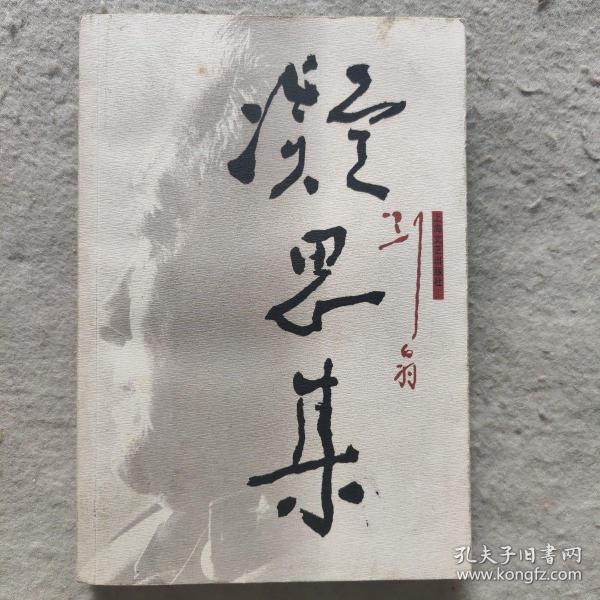 凝思集
上海文艺出版社
孔夫子旧书网
www.kongfz.com